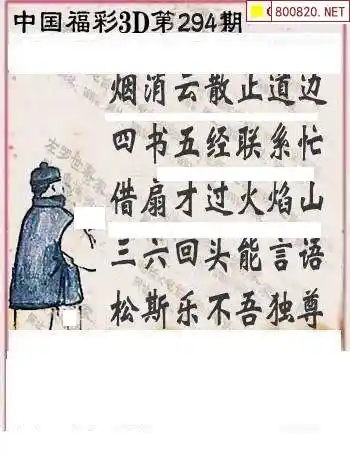 中国福彩3D第294期
800820.NET
烟消云散止道边
四书五经联系忙
借扇才过火焰山
三六回头能言语
松斯乐不吾独尊